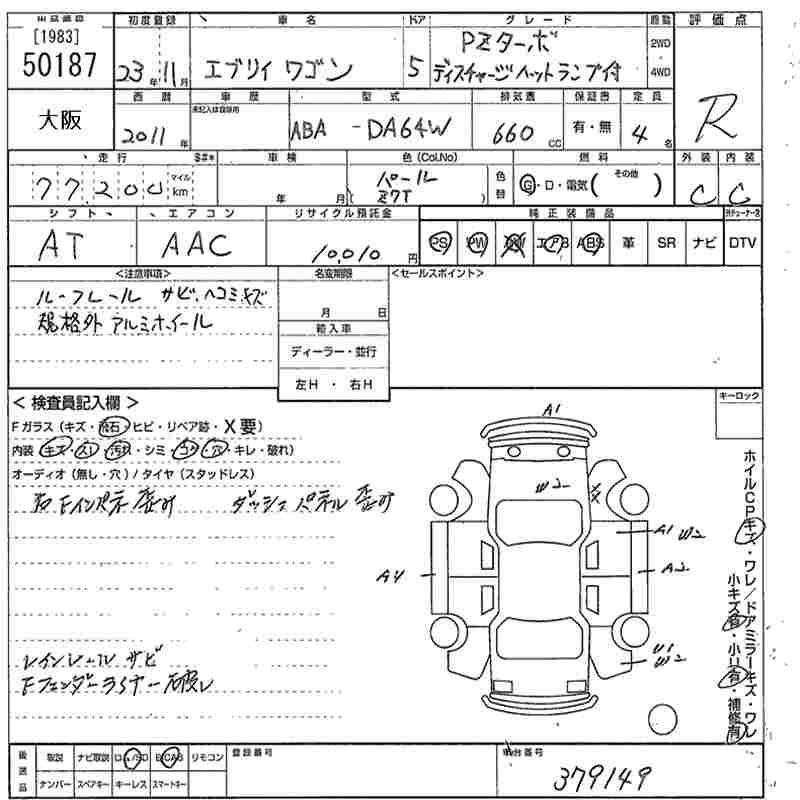 [1983]
50187
大阪
初度登録
23年11月
車名
エブリイ ワゴン
ドア
5
グレード
PZターボ
ディスチャージヘットランプ付
駆動
2WD
4WD
評価点
R
西暦
2011年
車歴
未記入は自家用
型式
ABA-DA64W
排気書
660cc
保証書
有・無
定員
4名
走行
S#*
77,200
マイル
km
車検
年 月
色(Col.No)
パール
(Z7T)
色替
燃料
G・D・電気( その他 )
外装
C
内装
C
シフト
AT
エアコン
AAC
リサイクル預託金
10,010円
純正装備品
PS
PW
AW
エアB
ABS
革
SR
ナビ
DTV
<注意事項>
ルーフレール サビ、ヘコミ、キズ
規格外 アルミホイール
名変期限
月 日
輸入車
ディーラー・並行
左H・右H
<セールスポイント>
キーロック
<検査員記入欄>
Fガラス(キズ・飛石・ヒビ・リペア跡・X要)
内装(キズ・スリ・汚れ・シミ・コゲ・穴・キレ・破れ)
オーディオ(無し・穴)/タイヤ(スタッドレス)
右Fインパネ歪み ダッシュパネル歪み
レインレール サビ
Fフェンダーライナー破レ
A1
W2
XX
A1 W2
A2
A4
U1
W2
ホイルCPキズ・ワレ/ドアミラーキズ・ワレ
小キズ有・小凹有・補修有
後送品
取説
ナビ取説
ロム/SD
B(CAS
リモコン
ナンバー
スペアキー
キーレス
スマートキー
登録番号
車台番号
379149